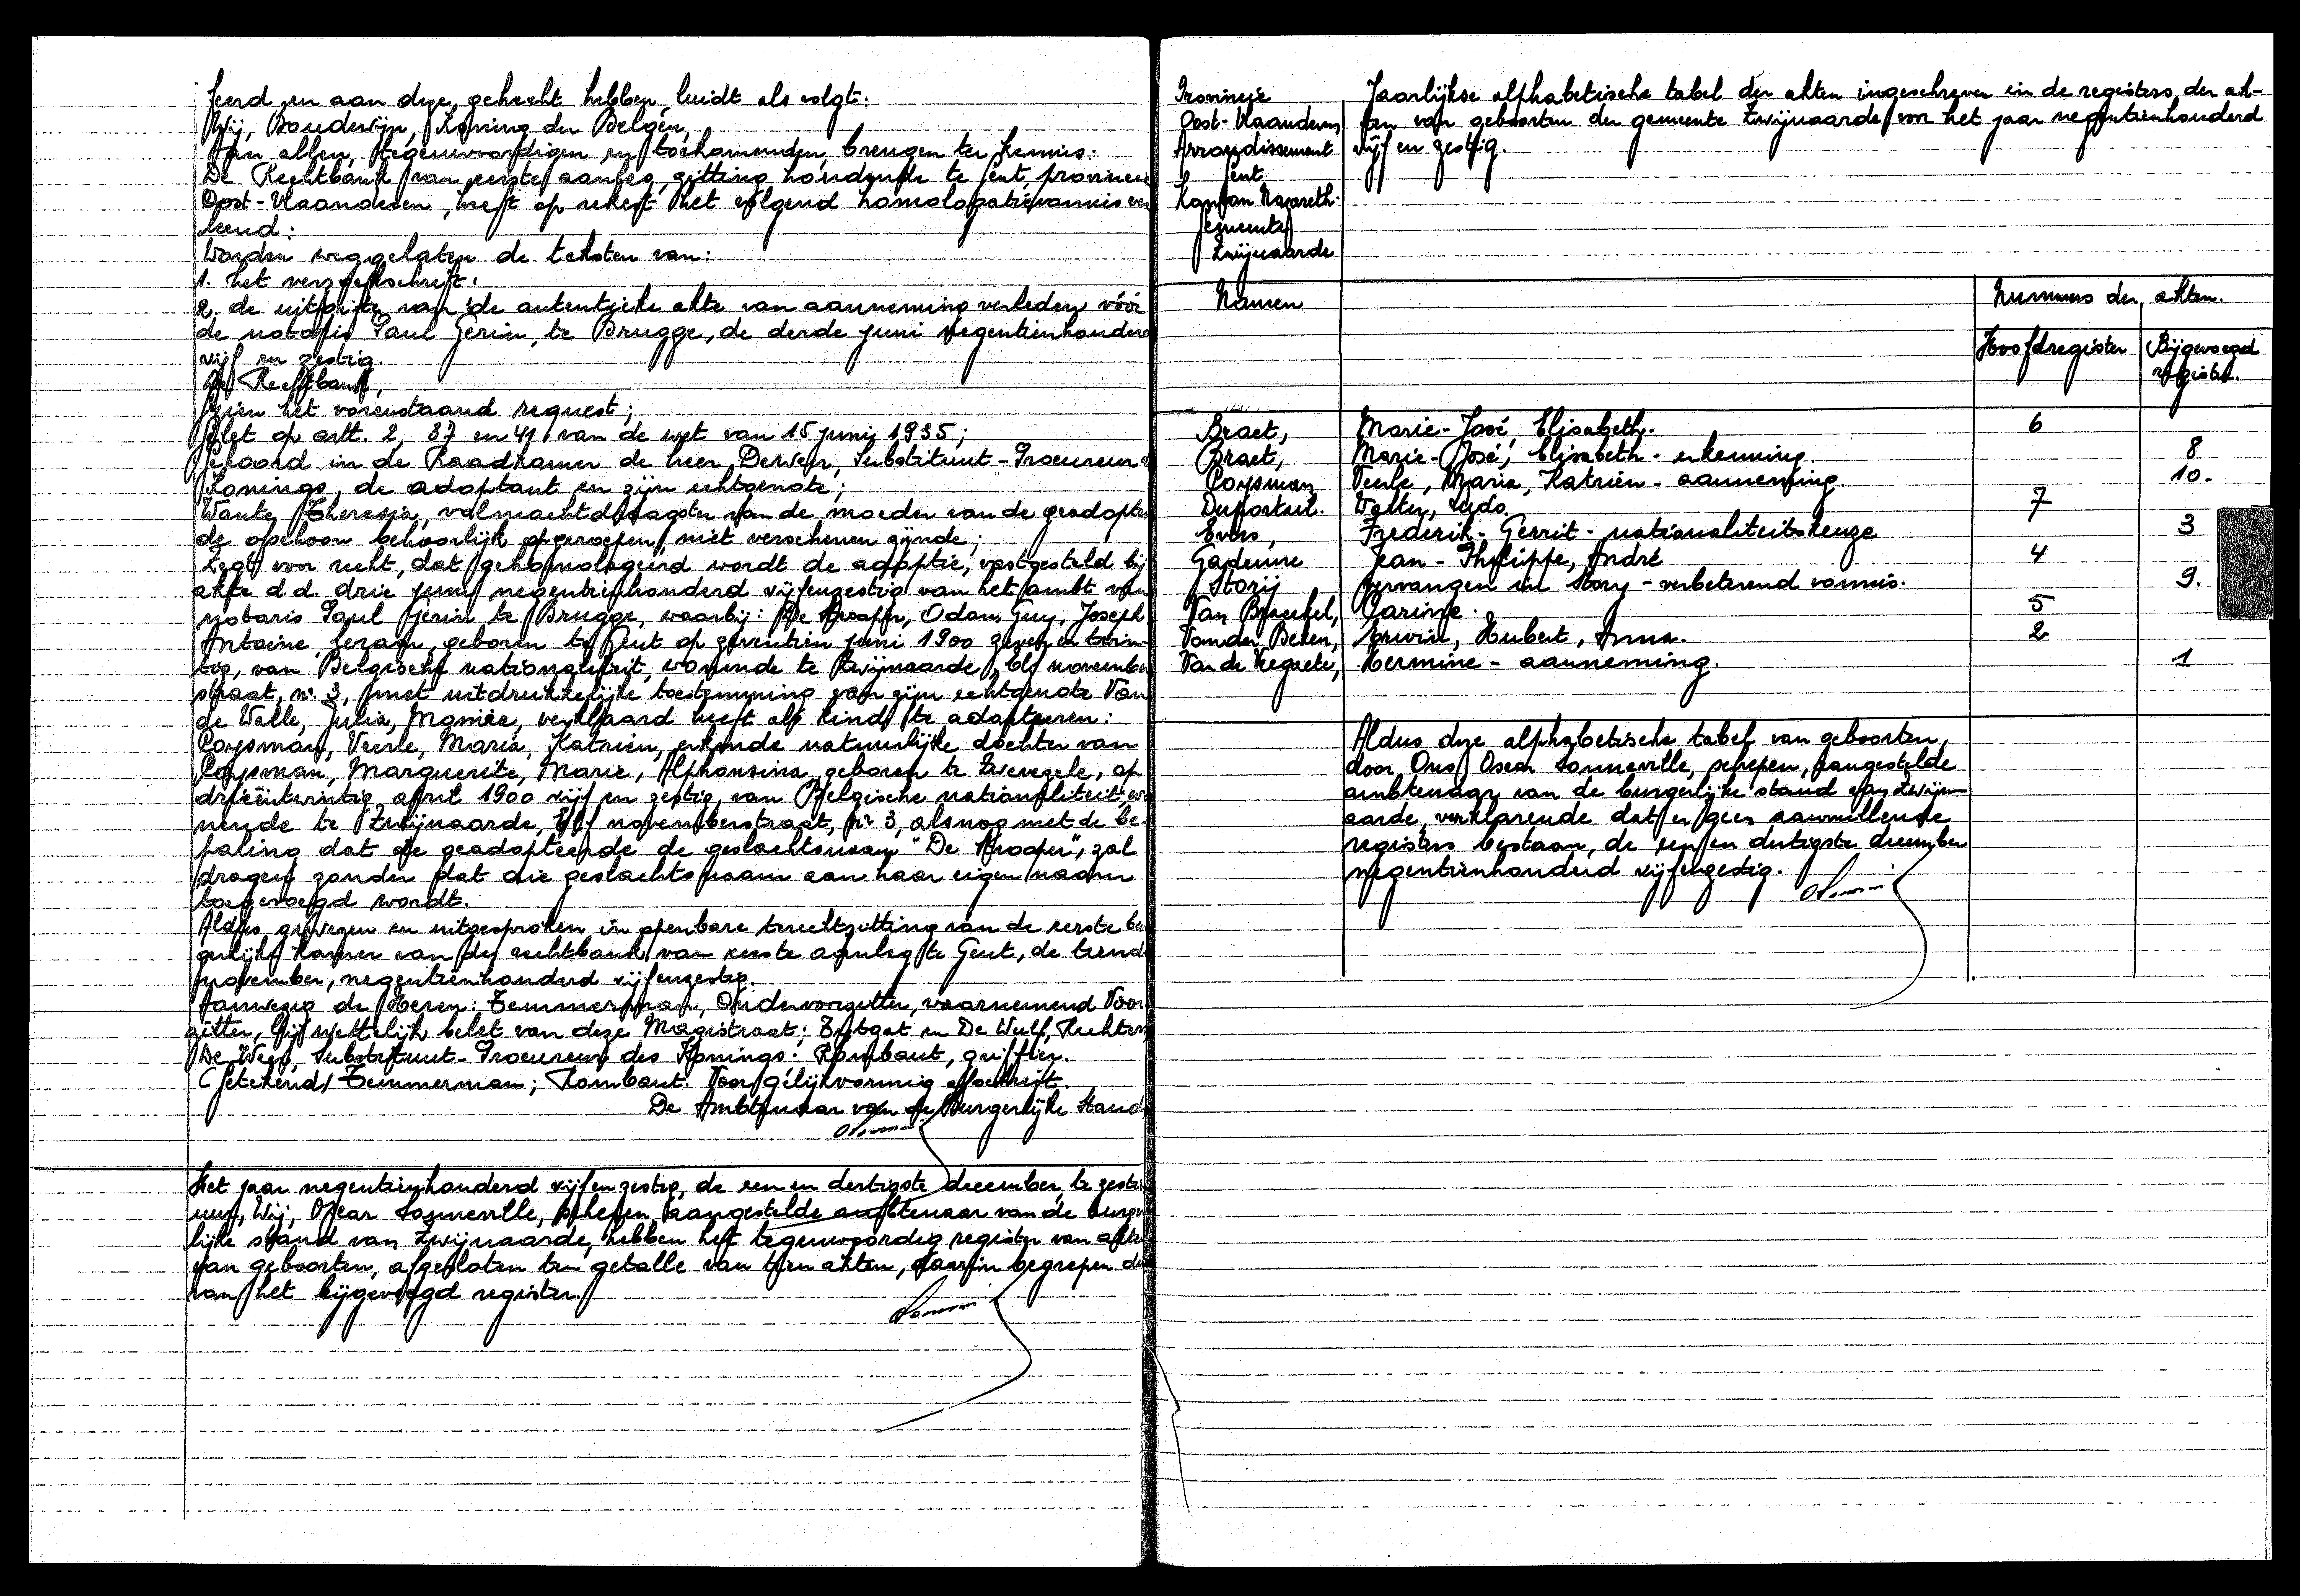 feerd en aan deze gehecht hebben luidt als volgt:
Wij, Boudewijn, Koning der Belgen,
Aan allen, tegenwoordigen en toekomenden, brengen ter kennis:
De Rechtbank van eerste aanleg, zitting houdende te Gent, provincie
Oost-Vlaanderen, heeft op rekest het volgend homologatievonnis ver
leend:
Worden weggelaten de teksten van:
1. het verzoekschrift.
2. de uitgifte van de autentieke akte van aanneming verleden vóór
de notaris Paul Gerin, te Brugge, de derde juni negentienhonderd
vijf en zestig.
De Rechtbank,
Gezien het vorenstaand request;
Gelet op artt. 2, 37 en 41 van de wet van 15 juni 1935;
Gehoord in de Raadkamer de heer Deweer, Substituut-Procureur des
Konings, de adoptant en zijn echtgenote;
Wante Theresia, volmachtdraagster van de moeder van de geadopteer
de ofschoon behoorlijk opgeroepen niet verschenen zijnde;
Zegt voor recht, dat gehomologeerd wordt de adoptie, vastgesteld bij
akte d.d. drie juni negentienhonderd vijfenzestig van het ambt van
notaris Paul Gerin te Brugge, waarbij: De Propper, Odon, Guy, Joseph
Antoine, Gerard, geboren te Gent op zeventien juni 1900 zeven en twin-
tig, van Belgische nationaliteit, wonende te Zwijnaarde, Elf november
straat, nr 3, met uitdrukkelijke toestemming van zijn echtgenote Van
de Walle, Julia, Monica, verklaard heeft als kind te adopteren:
Coysman, Veerle, Maria, Katrien, erkende natuurlijke dochter van
Coysman, Marguerite, Marie, Alphonsina geboren te Zwevegele, op
drieëntwintig april 1900 vijf en zestig, van Belgische nationaliteit, wo
nende te Zwijnaarde, Elf novemberstraat, nr 3, alsnog met de be-
paling dat de geadopteerde de geslachtsnaam "De Propper", zal
dragen zonder dat die geslachtsnaam aan haar eigen naam
toegevoegd wordt.
Aldus gewezen en uitgesproken in openbare terechtzitting van de eerste bur
gerlijke kamer van de rechtbank van eerste aanleg te Gent, de tiende
november, negentienhonderd vijfenzestig.
Aanwezig de Heren: Temmerman, Ondervoorzitter, waarnemend Voor
zitter, bij wettelijk belet van deze Magistraat; Eutgat en De Wulf, Rechters
De Weer, Substituut-Procureur des Konings: Rombaut, griffier.
(Getekend) Temmerman; Rombaut. Voor gelijkvormig afschrift.
De Ambtenaar van de Burgerlijke Stand
Het jaar negentienhonderd vijfenzestig, de een en dertigste december, te zestien
uur, Wij, Oscar Sonneville, schepen, aangestelde ambtenaar van de burger
lijke stand van Zwijnaarde, hebben het tegenwoordig register van akten
van geboorten, afgesloten ten getalle van tien akten, daarin begrepen die
van het bijgevoegd register.
Provincie
Oost-Vlaanderen
Arrondissement
Gent
Kanton Nazareth
Gemeente
Zwijnaarde
Jaarlijkse alphabetische tabel der akten ingeschreven in de registers der ak-
ten van geboorten der gemeente Zwijnaarde voor het jaar negentienhonderd
vijf en zestig.
Namen Nummers der akten.
Hoofdregister Bijgevoegd
register.
Braet, Marie-José, Elisabeth. 6
Braet, Marie-José, Elisabeth - erkenning. 8
Coysman Veerle, Maria, Katrien - aanneming. 10.
Duportail. Walter, Ludo. 7
Evers, Frederik-Gerrit - nationaliteitskeuze 3
Gadeyne Jean-Philippe, André 4
Storij vervangen in Story - verbeterend vonnis. 9.
Van Braeckel, Carine. 5
Vander Beken, Erwin, Hubert, Anna. 2
Van de Keyrete, Hermine - aanneming. 1
Aldus deze alphabetische tabel van geboorten,
door Ons, Oscar Sonneville, schepen, aangestelde
ambtenaar van de burgerlijke stand van Zwijn-
aarde, verklarende dat er geen aanvullende
registers bestaan, de een en dertigste december
negentienhonderd vijfenzestig.